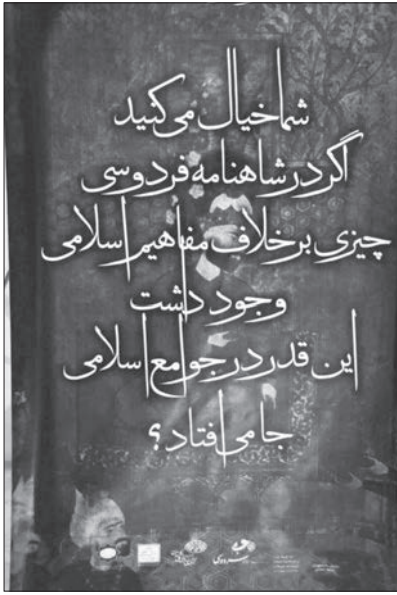 شما خیال می‌کنید
اگر در شاهنامه فردوسی
چیزی برخلاف مفاهیم اسلامی
وجود داشت
این قدر در جوامع اسلامی
جا می‌افتاد؟